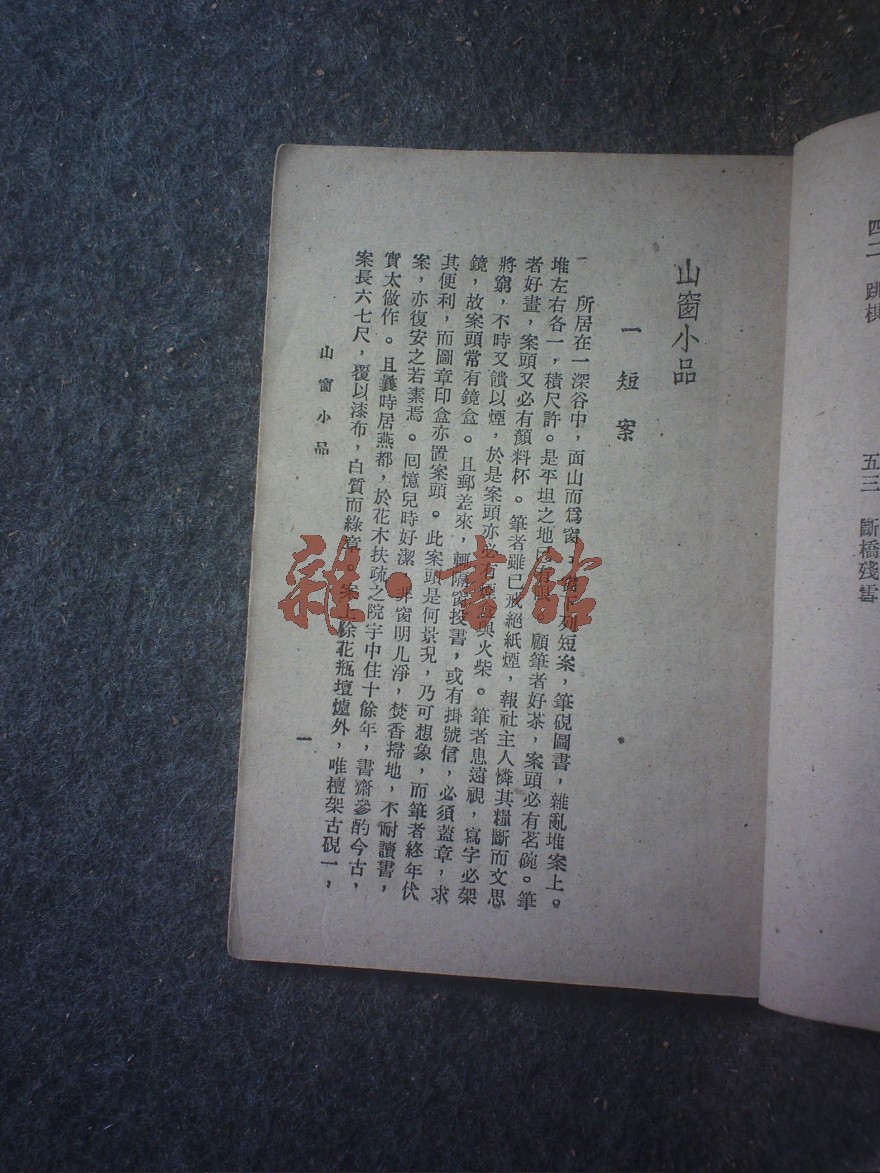 四二 跳棋
五三 斷橋殘雪
山窗小品
一 短案
所居在一深谷中，面山而爲窗，窗下列短案，筆硯圖書，雜亂堆案上。
堆左右各一，積尺許。是平坦之地已有限。顧筆者好茶，案頭必有茗碗。筆
者好畫，案頭又必有顏料杯。筆者雖已戒絕紙煙，報社主人憐其糧斷而文思
將窮，不時又饋以煙，於是案頭亦必有煙與火柴。筆者患遠視，寫字必架
鏡，故案頭常有鏡盒。且郵差來，輒隔窗投書，或有掛號信，必須蓋章，求
其便利，而圖章印盒亦置案頭。此案頭是何景况，乃可想象，而筆者終年伏
案，亦復安之若素焉。回憶兒時好潔，非窗明几淨，焚香掃地，不耐讀書，
實太做作。且曩時居燕都，於花木扶疏之院宇中住十餘年，書齋參酌今古，
案長六七尺，覆以漆布，白質而綠章，案上除花瓶壇爐外，唯檀架古硯一，
山窗小品
一
雜·書館